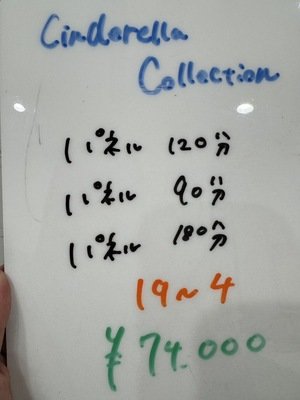 Cindarella
Collection
1パネル 120分
1パネル 90分
1パネル 180分
19~4
¥74.000